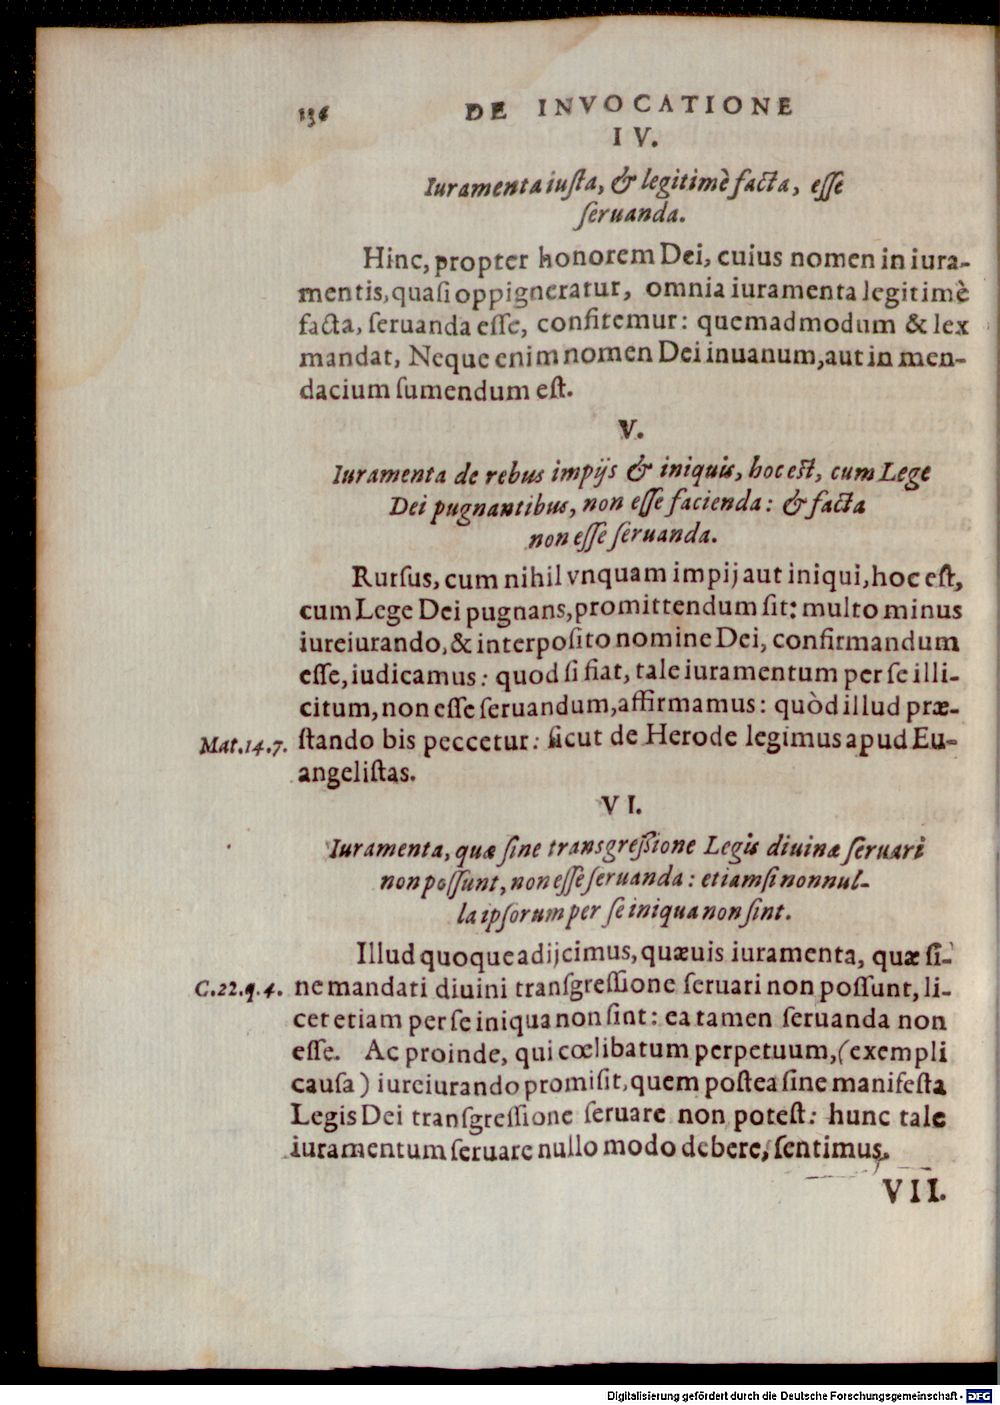 136 DE INVOCATIONE
IV.
Iuramenta iuſta, & legitimè facta, eſſe
ſeruanda.
Hinc, propter honorem Dei, cuius nomen in iura-
mentis, quaſi oppigneratur, omnia iuramenta legitimè
facta, ſeruanda eſſe, confitemur: quemadmodum & lex
mandat, Neque enim nomen Dei inuanum, aut in men-
dacium ſumendum eſt.
V.
Iuramenta de rebus impijs & iniquis, hoc eſt, cum Lege
Dei pugnantibus, non eſſe facienda: & facta
non eſſe ſeruanda.
Rurſus, cum nihil vnquam impij aut iniqui, hoc eſt,
cum Lege Dei pugnans, promittendum ſit: multo minus
iureiurando, & interpoſito nomine Dei, confirmandum
eſſe, iudicamus: quod ſi fiat, tale iuramentum per ſe illi-
citum, non eſſe ſeruandum, affirmamus: quòd illud præ-
Mat.14.7. ſtando bis peccetur: ſicut de Herode legimus apud Eu-
angeliſtas.
VI.
Iuramenta, quæ ſine transgreſsione Legis diuinæ ſeruari
non poſſunt, non eſſe ſeruanda: etiamſi nonnul-
la ipſorum per ſe iniqua non ſint.
Illud quoque adijcimus, quæuis iuramenta, quæ ſi-
C.22.q.4. ne mandati diuini transgreſſione ſeruari non poſſunt, li-
cet etiam per ſe iniqua non ſint: ea tamen ſeruanda non
eſſe. Ac proinde, qui cœlibatum perpetuum, (exempli
cauſa) iureiurando promiſit, quem poſtea ſine manifeſta
Legis Dei transgreſſione ſeruare non poteſt: hunc tale
iuramentum ſeruare nullo modo debere, ſentimus.
VII.
Digitalisierung gefördert durch die Deutsche Forschungsgemeinschaft - DFG